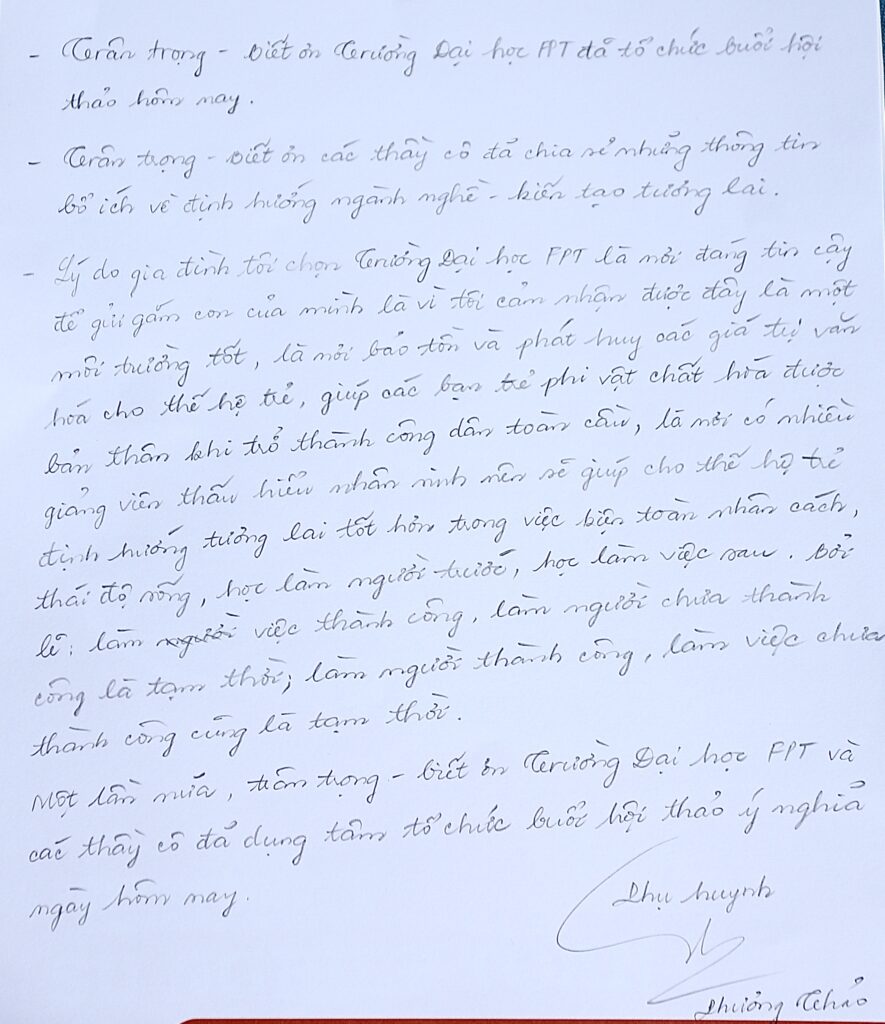 - Trân trọng - biết ơn Trường Đại học FPT đã tổ chức buổi hội
thảo hôm nay.
- Trân trọng - biết ơn các thầy cô đã chia sẻ những thông tin
bổ ích về định hướng ngành nghề - kiến tạo tương lai.
- Lý do gia đình tôi chọn Trường Đại học FPT là nơi đáng tin cậy
để gửi gắm con của mình là vì tôi cảm nhận được đây là một
môi trường tốt, là nơi bảo tồn và phát huy các giá trị văn
hóa cho thế hệ trẻ, giúp các bạn trẻ phi vật chất hóa được
bản thân khi trở thành công dân toàn cầu, là nơi có nhiều
giảng viên thấu hiểu nhân sinh nên sẽ giúp cho thế hệ trẻ
định hướng tương lai tốt hơn trong việc kiện toàn nhân cách,
thái độ sống, học làm người trước, học làm việc sau. Bởi
lẽ: làm người việc thành công, làm người chưa thành
công là tạm thời; làm người thành công, làm việc chưa
thành công cũng là tạm thời.
Một lần nữa, trân trọng - biết ơn Trường Đại học FPT và
các thầy cô đã dụng tâm tổ chức buổi hội thảo ý nghĩa
ngày hôm nay.
Phụ huynh
Phương Thảo